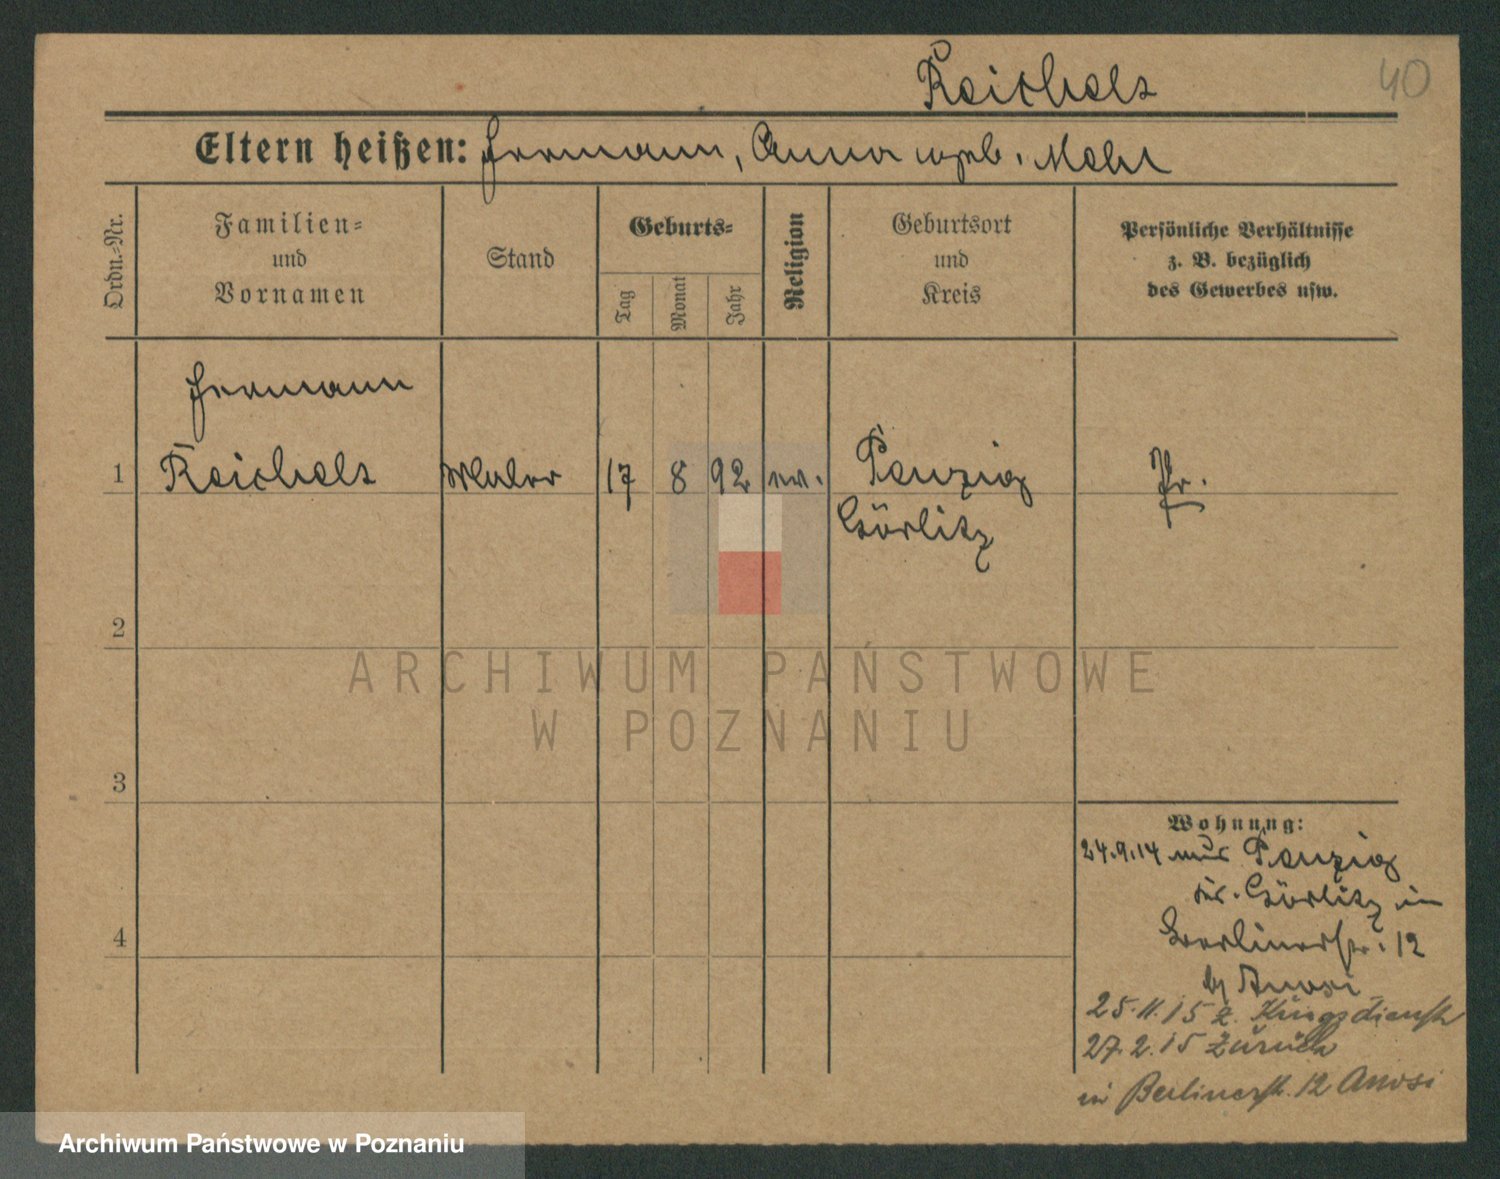 Reichelt
40
Eltern heißen: Hermann, Anna geb. Mohr
Ordn.-Nr.
Familien-
und
Vornamen
Stand
Geburts-
Tag
Monat
Jahr
Religion
Geburtsort
und
Kreis
Persönliche Verhältnisse
z. B. bezüglich
des Gewerbes usw.
Hermann
1 Reichelt Maler 17 8 92 ev. Penzig Pr.
Görlitz
2
3
4
ARCHIWUM PAŃSTWOWE
W POZNANIU
Wohnung:
24.9.14 aus Penzig
Kr. Görlitz in
Berlinerstr. 12
b/ Anosi
25.11.15 z. Kriegsdienst
27.2.15 Zurück
in Berlinerstr. 12 Anosi
Archiwum Państwowe w Poznaniu